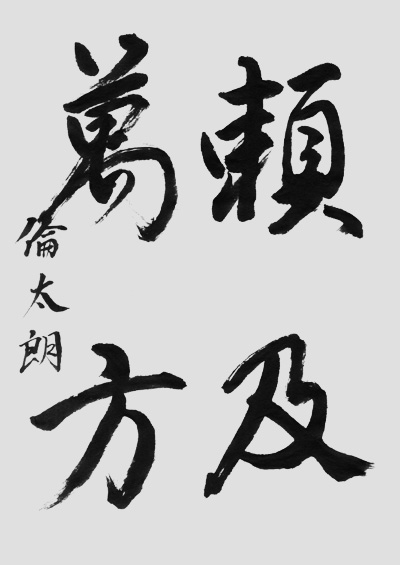 頼及
萬方
倫太朗